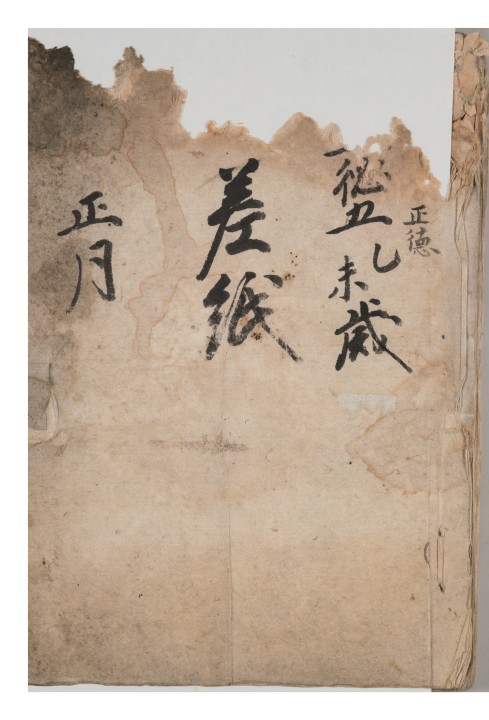 正徳
徳五乙未歳
差紙
正月